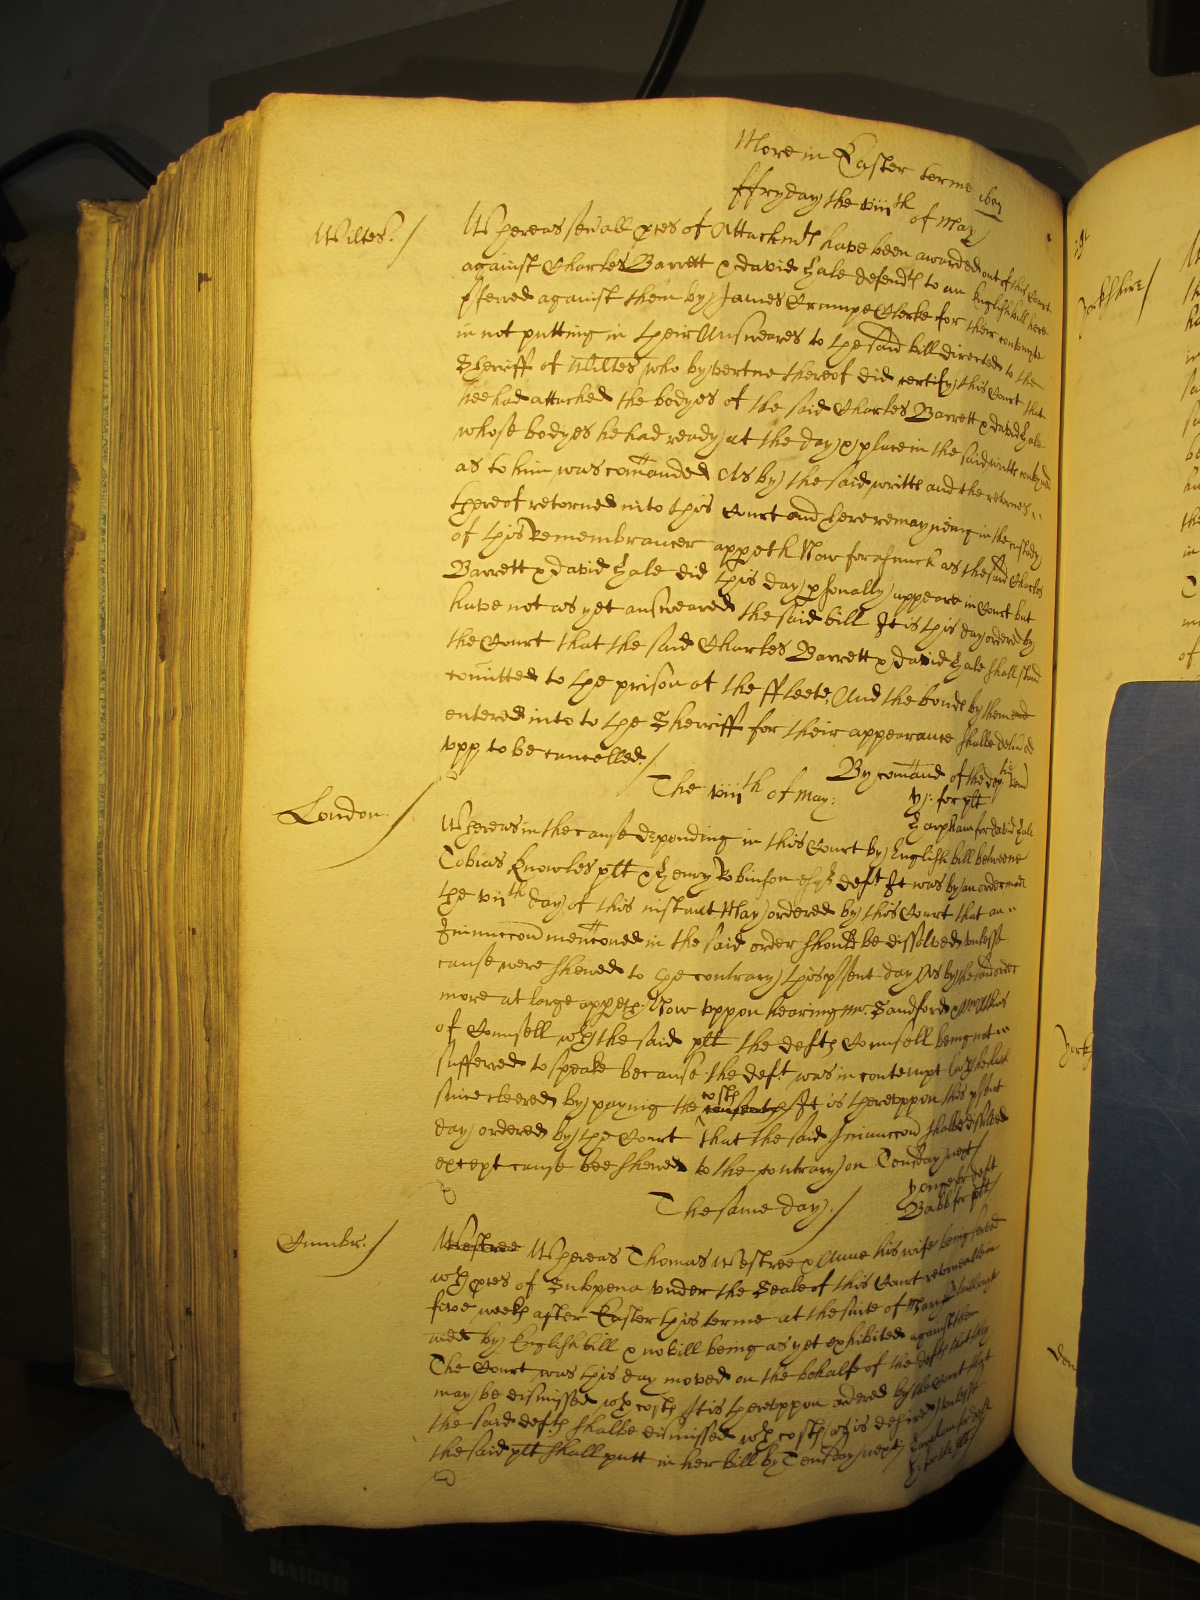 More in Easter terme 1607
ffryday the viiith of May
Wiltes./
Whereas sev̄all p̱ces of Attachmt have been awarded out of this Court
against Charles Barrett & david Hale defendts to an English bill here
p̱ferred against them by James Crumpe Clerke for their contempte
in not putting in their Answeares to the said bill directed to the
Sherriff of Wiltes who by vertue thereof did certify this Court that
hee had attached the bodyes of the said Charles Barrett & david Hale
whose bodyes he had ready at the day & place in the said writts conteyned
as to him was com̄anded As by the said writts and the retornes
thereof retorned into this Court and here remayning in the custody
of this Remembrancer appeth Now forasmuch as the said Charles
Barrett & david Hale did this day p̱sonally appeare in Court but
have not as yet answeared the said bill It is this day ordered by
the Court that the said Charles Barrett & david Hale shall stand
com̄itted to the prison of the ffleete, And the bonds by them
entered into to the Sherriff for their appearance shalbe deliv̄ed
vpp to be cancelled./
By com̄and of the
The viiith of May:
for plt
Harpham for david Hale
London./
Whereas in the cause depending in this Court by English bill betweene
Tobias Knowles plt & Henry Robinson esqr deft It was by an order made
the viith day of this instant May ordered by this Court that an
Iniunccon menc̄oned in the said order should be dissolved vnlesse
cause were shewed to the contrary this p̱sent day As by the said order
more at large appeth: Now vppon hearing mr. Sandford &
of Counsell wth the said plt the defts Counsell being not
suffered to speake because the deft was in contempt
since cleered by paying the costs It is therevppon this p̱sent
day ordered by the Court that the said Iniunccon shalbe dissolved
except cause bee shewed to the contrary on Teusday next/
Yonge for deft
Babb for plt/
The same day./
Cumbr./
Westree Whereas Thomas Westree & Anne his wife being served
wth p̱ces of Subpena vnder the Seale of this Court retorneable in
five weeks after Easter this terme at the suite of Mary
by English bill & no bill being as yet exhibited against them
The Court was this day moved on the behalfe of the defts that they
may be dismissed wth costs It is therevppon ordered by the Court that
the said defts shalbe dismissed wth costs as is desired vnlesse
the said plt shall putt in her bill by Teusday next/
Harpham for deft
for the plt
Yorkshire/